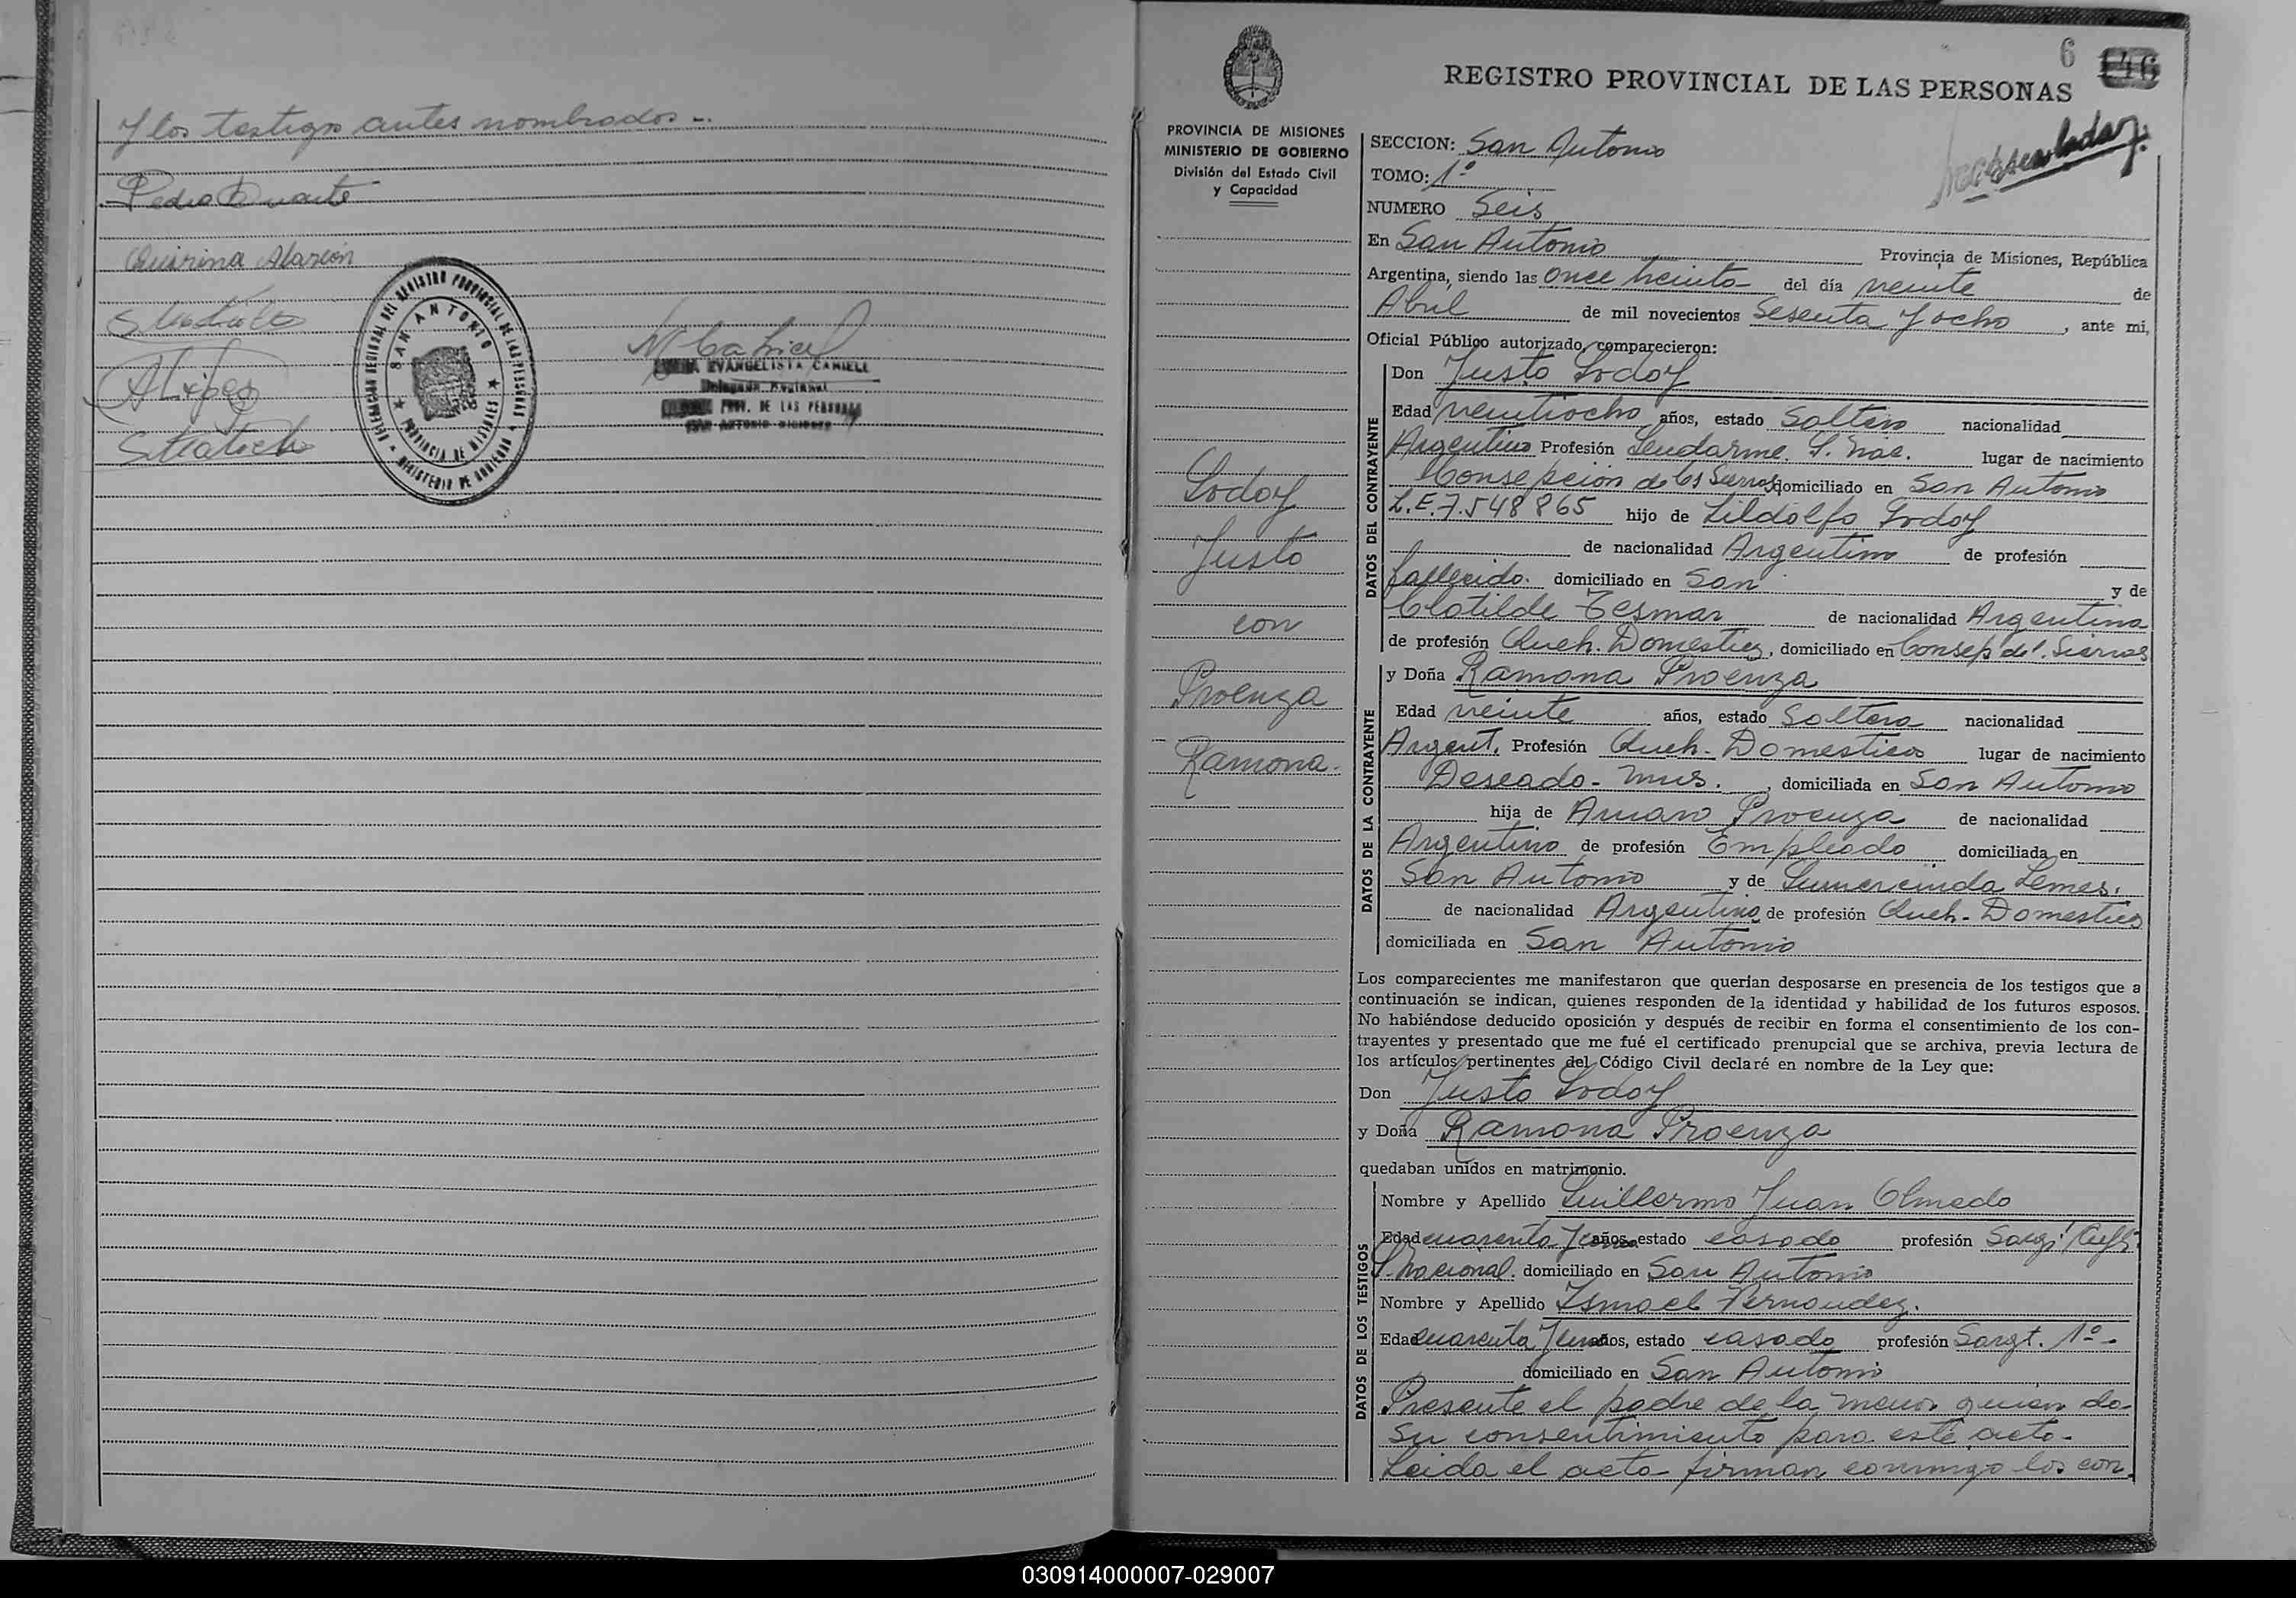 y los testigos antes nombrados -.
Pedro Duarte
Quirina Alarcón
DELEGACION REGIONAL DEL REGISTRO PROVINCIAL DE LAS PERSONAS
SAN ANTONIO
PROVINCIA DE MISIONES
MINISTERIO DE GOBIERNO
EVANGELISTA CANIELL
Delegada Regional
PROV. DE LAS PERSONAS
SAN ANTONIO Misiones
6
146
REGISTRO PROVINCIAL DE LAS PERSONAS
PROVINCIA DE MISIONES
MINISTERIO DE GOBIERNO
División del Estado Civil
y Capacidad
Godoy
Justo
con
Proenza
Ramona.
SECCION: San Antonio
TOMO: 1º
NUMERO Seis
En San Antonio Provincia de Misiones, República
Argentina, siendo las once treinta del día veinte de
Abril de mil novecientos Sesenta y ocho, ante mi,
Oficial Público autorizado, comparecieron:
DATOS DEL CONTRAYENTE
Don Justo Godoy
Edad veintiocho años, estado Soltero nacionalidad
Argentino Profesión Gendarme. G. Nac. lugar de nacimiento
Consepción de los Sierras domiciliado en San Antonio
L.E. 7.548865 hijo de Lildolfo Godoy
de nacionalidad Argentino de profesión
fallecido. domiciliado en San y de
Clotilde Tesmar de nacionalidad Argentina
de profesión Queh. Domestico, domiciliado en Consep. de l. Sierras
DATOS DE LA CONTRAYENTE
y Doña Ramona Proenza
Edad veinte años, estado Soltera nacionalidad
Argent. Profesión Queh. Domesticos lugar de nacimiento
Deseado - Mnes., domiciliada en San Antonio
hija de Amaro Proenza de nacionalidad
Argentino de profesión Empleado domiciliada en
San Antonio y de Gumercinda Lemes.
de nacionalidad Argentina de profesión Queh. Domestico
domiciliada en San Antonio
Los comparecientes me manifestaron que querían desposarse en presencia de los testigos que a
continuación se indican, quienes responden de la identidad y habilidad de los futuros esposos.
No habiéndose deducido oposición y después de recibir en forma el consentimiento de los con-
trayentes y presentado que me fué el certificado prenupcial que se archiva, previa lectura de
los artículos pertinentes del Código Civil declaré en nombre de la Ley que:
Don Justo Godoy
y Doña Ramona Proenza
quedaban unidos en matrimonio.
DATOS DE LOS TESTIGOS
Nombre y Apellido Guillermo Juan Olmedo
Edad cuarenta y años, estado casado profesión Sarg.
G. Nacional. domiciliado en San Antonio
Nombre y Apellido Ismael Fernandez.
Edad cuarenta y años, estado casado profesión Sargt. 1º -
domiciliado en San Antonio
Presente el padre de la menor quien da
su consentimiento para este acto.
Leida el acta firman conmigo los con.
030914000007-029007